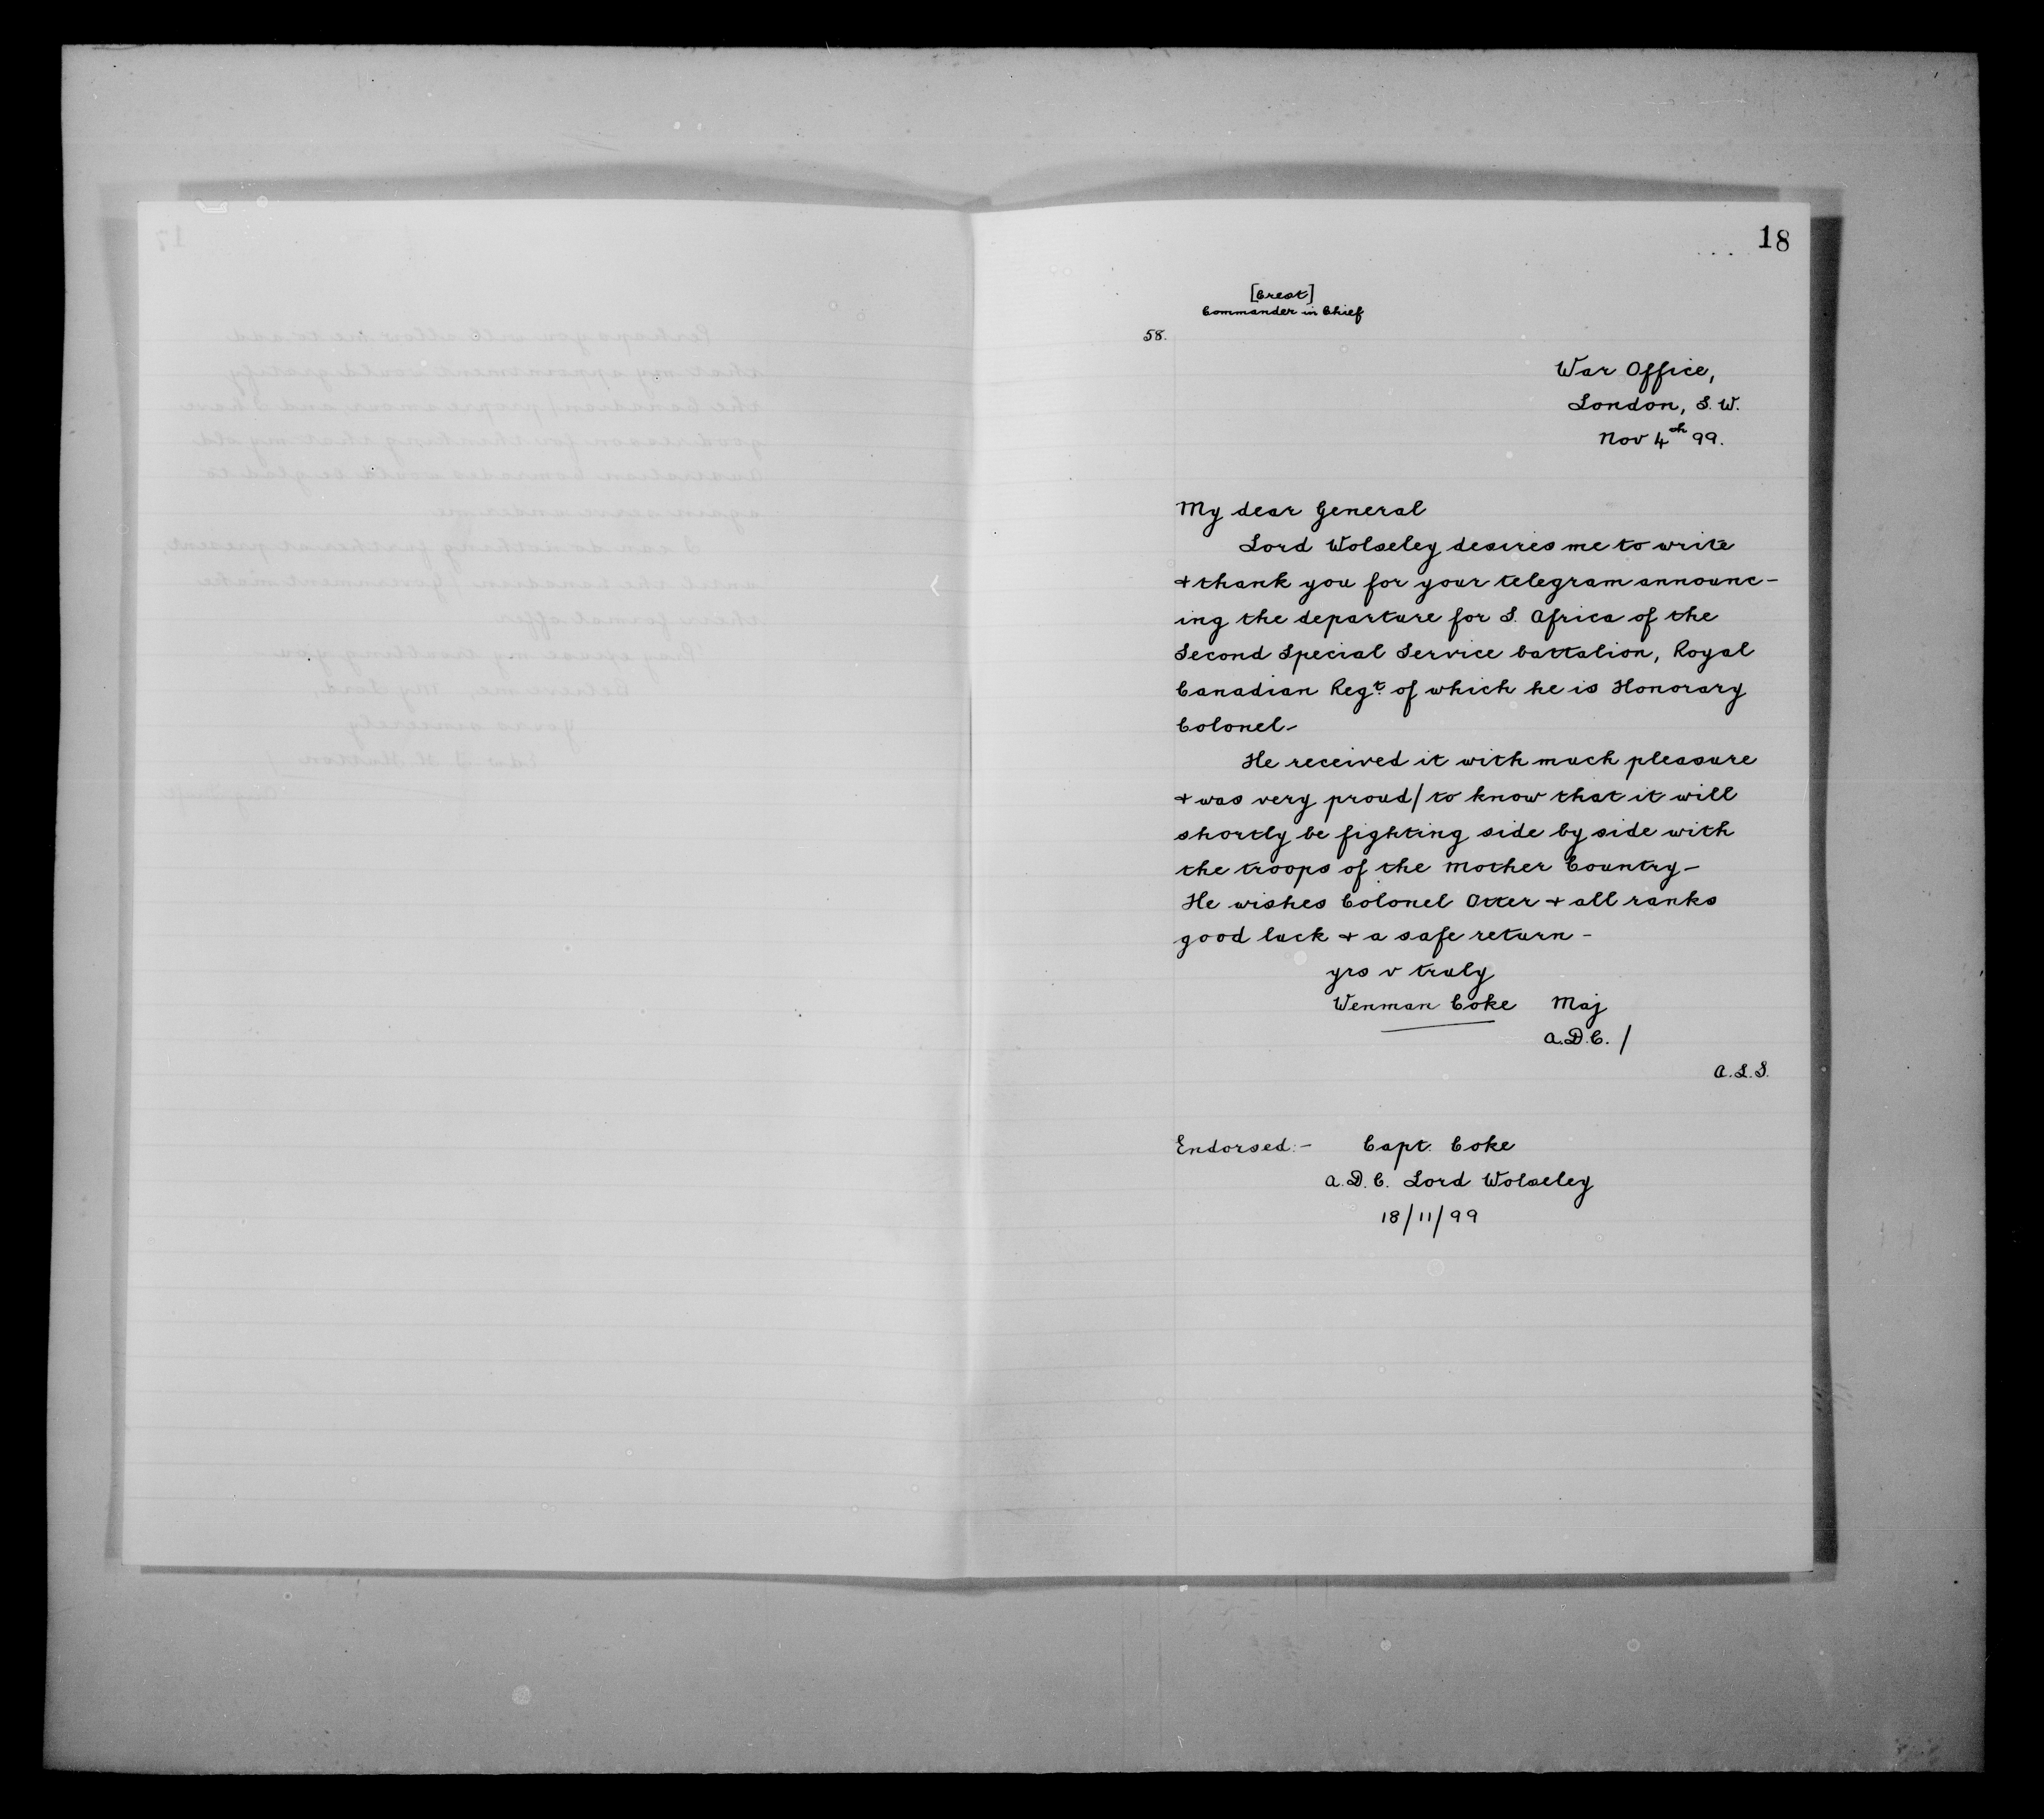 18
[Crest]
Commander in Chief
58.
War Office,
London, S.W.
Nov 4th 99.
My dear General
Lord Wolseley desires me to write
& thank you for your telegram announc-
ing the departure for S. Africa of the
Second Special Service battalion, Royal
Canadian Regt. of which he is Honorary
Colonel-
He received it with much pleasure
& was very proud/ to know that it will
shortly be fighting side by side with
the troops of the Mother Country-
He wishes Colonel Otter & all ranks
good luck & a safe return-
yrs v truly
Wenman Coke Maj
A.D.C. /
A.L.S.
Endorsed:- Capt. Coke
A.D.C. Lord Wolseley
18/11/99